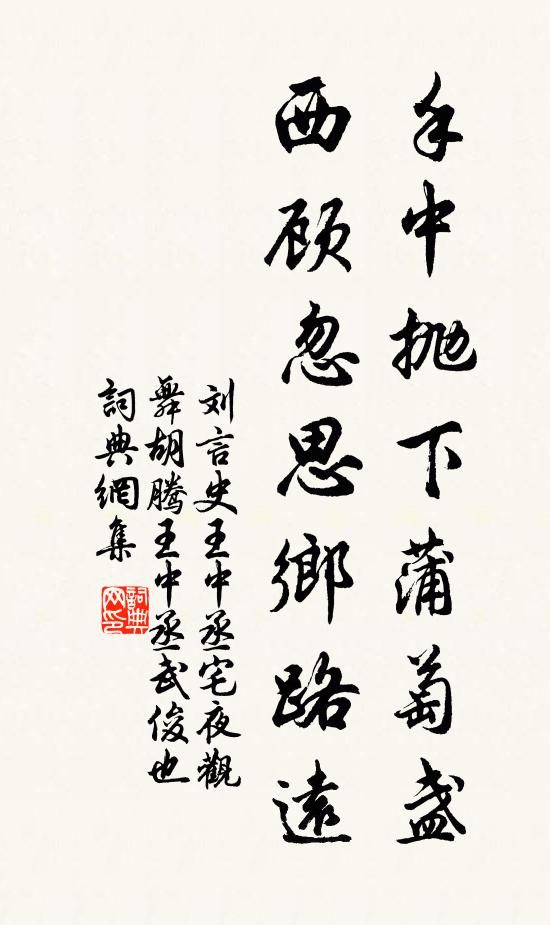 手中抛下蒲萄盏
西顾忽思鄉路遠
刘言史王中丞宅夜觀
舞胡腾王中丞武俊也
詞典網集
詞典网印